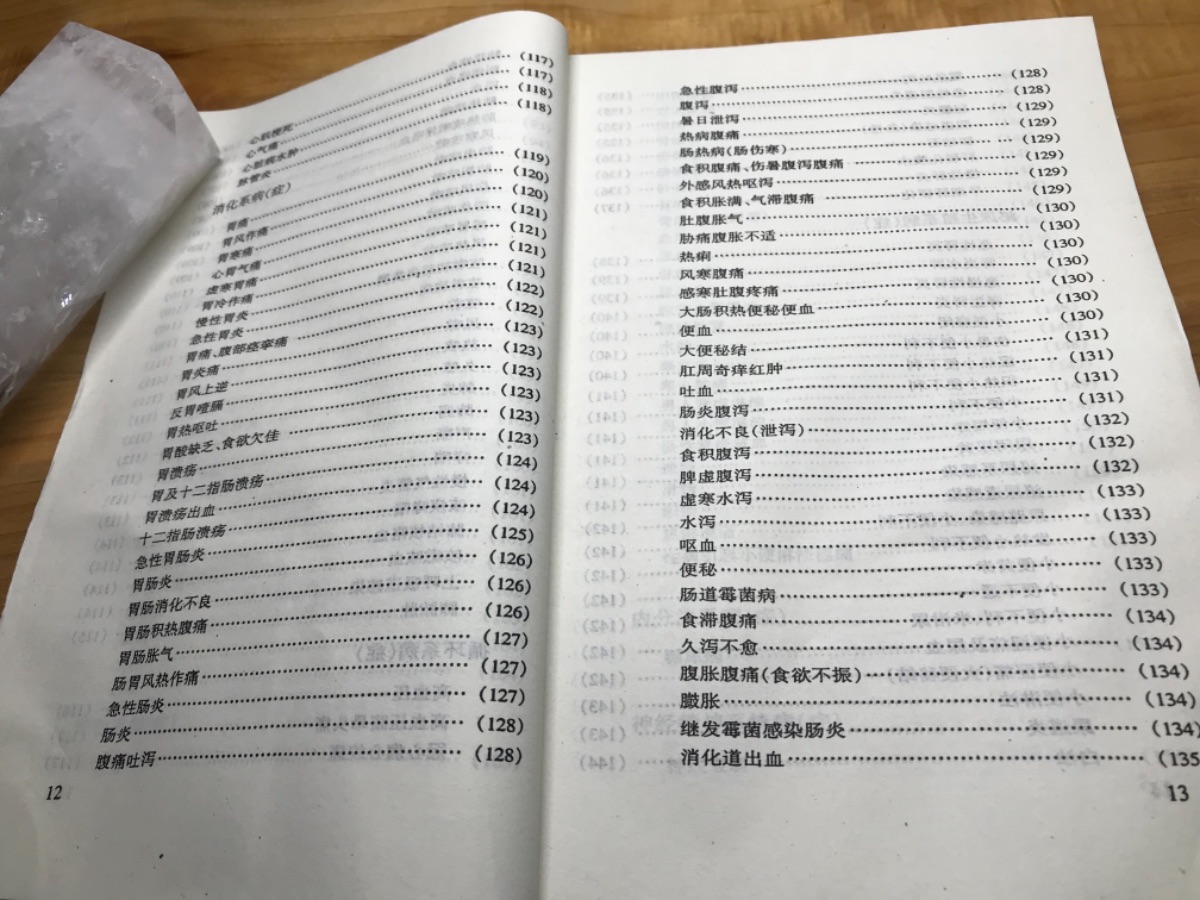 心肌梗死……(117)
心气痛……(117)
心脏病水肿……(118)
脉管炎……(118)
消化系病(症)
胃痛……(119)
胃风作痛……(120)
胃寒痛……(120)
心胃气痛……(121)
虚寒胃痛……(121)
胃冷作痛……(121)
慢性胃炎……(121)
急性胃炎……(122)
胃痛、腹部痉挛痛……(122)
胃炎痛……(123)
胃风上逆……(123)
反胃噎膈……(123)
胃热呕吐……(123)
胃酸缺乏、食欲欠佳……(123)
胃溃疡……(123)
胃及十二指肠溃疡……(124)
胃溃疡出血……(124)
十二指肠溃疡……(124)
急性胃肠炎……(125)
胃肠炎……(126)
胃肠消化不良……(126)
胃肠积热腹痛……(126)
胃肠胀气……(127)
肠胃风热作痛……(127)
急性肠炎……(127)
肠炎……(128)
腹痛吐泻……(128)
12
急性腹泻……(128)
腹泻……(128)
暑日泄泻……(129)
热病腹痛……(129)
肠热病(肠伤寒)……(129)
食积腹痛、伤暑腹泻腹痛……(129)
外感风热呕泻……(129)
食积胀满、气滞腹痛……(129)
肚腹胀气……(130)
胁痛腹胀不适……(130)
热痢……(130)
风寒腹痛……(130)
感寒肚腹疼痛……(130)
大肠积热便秘便血……(130)
便血……(130)
大便秘结……(131)
肛周奇痒红肿……(131)
吐血……(131)
肠炎腹泻……(131)
消化不良(泄泻)……(132)
食积腹泻……(132)
脾虚腹泻……(132)
虚寒水泻……(133)
水泻……(133)
呕血……(133)
便秘……(133)
肠道霉菌病……(133)
食滞腹痛……(134)
久泻不愈……(134)
腹胀腹痛(食欲不振)……(134)
臌胀……(134)
继发霉菌感染肠炎……(134)
消化道出血……(135
13